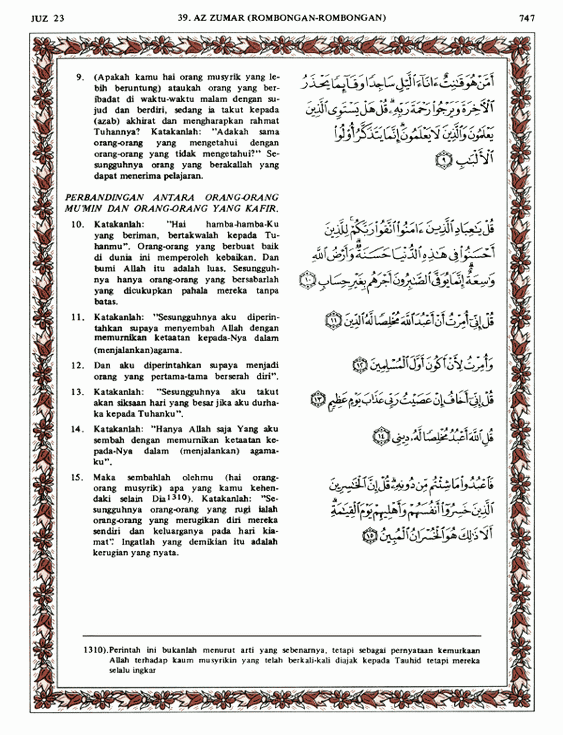 JUZ 23
39. AZ ZUMAR (ROMBONGAN-ROMBONGAN)
747
9. (Apakah kamu hai orang musyrik yang le-
bih beruntung) ataukah orang yang ber-
ibadat di waktu-waktu malam dengan su-
jud dan berdiri, sedang ia takut kepada
(azab) akhirat dan mengharapkan rahmat
Tuhannya? Katakanlah: "Adakah sama
orang-orang yang mengetahui dengan
orang-orang yang tidak mengetahui?" Se-
sungguhnya orang yang berakallah yang
dapat menerima pelajaran.
أَمَّنْ هُوَ قَانِتٌ ءَانَآءَ ٱلَّيْلِ سَاجِدًا وَقَآئِمًا يَحْذَرُ
ٱلْأَخِرَةَ وَيَرْجُوا۟ رَحْمَةَ رَبِّهِۦ ۗ قُلْ هَلْ يَسْتَوِى ٱلَّذِينَ
يَعْلَمُونَ وَٱلَّذِينَ لَا يَعْلَمُونَ ۗ إِنَّمَا يَتَذَكَّرُ أُو۟لُوا۟
ٱلْأَلْبَٰبِ ٩
PERBANDINGAN ANTARA ORANG-ORANG
MU'MIN DAN ORANG-ORANG YANG KAFIR.
10. Katakanlah: "Hai hamba-hamba-Ku
yang beriman, bertakwalah kepada Tu-
hanmu". Orang-orang yang berbuat baik
di dunia ini memperoleh kebaikan. Dan
bumi Allah itu adalah luas. Sesungguh-
nya hanya orang-orang yang bersabarlah
yang dicukupkan pahala mereka tanpa
batas.
قُلْ يَٰعِبَادِ ٱلَّذِينَ ءَامَنُوا۟ ٱتَّقُوا۟ رَبَّكُمْ ۚ لِلَّذِينَ
أَحْسَنُوا۟ فِى هَٰذِهِ ٱلدُّنْيَا حَسَنَةٌ ۗ وَأَرْضُ ٱللَّهِ
وَٰسِعَةٌ ۗ إِنَّمَا يُوَفَّى ٱلصَّٰبِرُونَ أَجْرَهُم بِغَيْرِ حِسَابٍ ١٠
11. Katakanlah: "Sesungguhnya aku diperin-
tahkan supaya menyembah Allah dengan
memurnikan ketaatan kepada-Nya dalam
(menjalankan)agama.
قُلْ إِنِّىٓ أُمِرْتُ أَنْ أَعْبُدَ ٱللَّهَ مُخْلِصًا لَّهُ ٱلدِّينَ ١١
12. Dan aku diperintahkan supaya menjadi
orang yang pertama-tama berserah diri".
وَأُمِرْتُ لِأَنْ أَكُونَ أَوَّلَ ٱلْمُسْلِمِينَ ١٢
13. Katakanlah: "Sesungguhnya aku takut
akan siksaan hari yang besar jika aku durha-
ka kepada Tuhanku".
قُلْ إِنِّىٓ أَخَافُ إِنْ عَصَيْتُ رَبِّى عَذَابَ يَوْمٍ عَظِيمٍ ١٣
14. Katakanlah: "Hanya Allah saja Yang aku
sembah dengan memurnikan ketaatan ke-
pada-Nya dalam (menjalankan) agama-
ku".
قُلِ ٱللَّهَ أَعْبُدُ مُخْلِصًا لَّهُۥ دِينِى ١٤
15. Maka sembahlah olehmu (hai orang-
orang musyrik) apa yang kamu kehen-
daki selain Dia1310). Katakanlah: "Se-
sungguhnya orang-orang yang rugi ialah
orang-orang yang merugikan diri mereka
sendiri dan keluarganya pada hari kia-
mat". Ingatlah yang demikian itu adalah
kerugian yang nyata.
فَٱعْبُدُوا۟ مَا شِئْتُم مِّن دُونِهِۦ ۗ قُلْ إِنَّ ٱلْخَٰسِرِينَ
ٱلَّذِينَ خَسِرُوٓا۟ أَنفُسَهُمْ وَأَهْلِيهِمْ يَوْمَ ٱلْقِيَٰمَةِ ۗ
أَلَا ذَٰلِكَ هُوَ ٱلْخُسْرَانُ ٱلْمُبِينُ ١٥
1310).Perintah ini bukanlah menurut arti yang sebenarnya, tetapi sebagai pernyataan kemurkaan
Allah terhadap kaum musyrikin yang telah berkali-kali diajak kepada Tauhid tetapi mereka
selalu ingkar